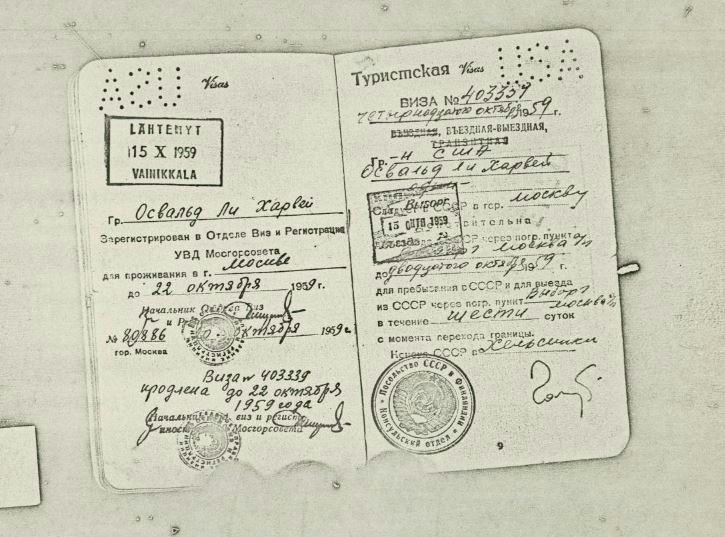 Visas
LÄHTENYT
15 X 1959
VAINIKKALA
Гр. Освальд Ли Харвей
Зарегистрирован в Отделе Виз и Регистрации
УВД Мосгорсовета
для проживания в г. Москве
до 22 октября 1959 г.
Начальник Отдела Виз
и Рег
№ 89886 октября 1959 г.
гор. Москва
Виза № 403339
продлена до 22 октября
1959 года
Начальник виз и регистр
Мосгорсовета
USA
Туристская Visas
ВИЗА № 403339
четырнадцатого октября 1959 г.
ВЪЕЗДНАЯ-ВЫЕЗДНАЯ,
ТРАНЗИТНАЯ
Гр-н США
Освальд Ли Харвей
Следует в СССР в гор. Москву
Выборг
15 ОКТ. 1959
Действительна
для въезда в СССР через погр. пункт
Москва
до двадцатого октября 1959 г.
для пребывания в СССР и для выезда
из СССР через погр. пункт Выборг
Москва
в течение шести суток
с момента перехода границы.
Консул СССР в Хельсинки
Посольство СССР в Финляндии
Консульский отдел
9